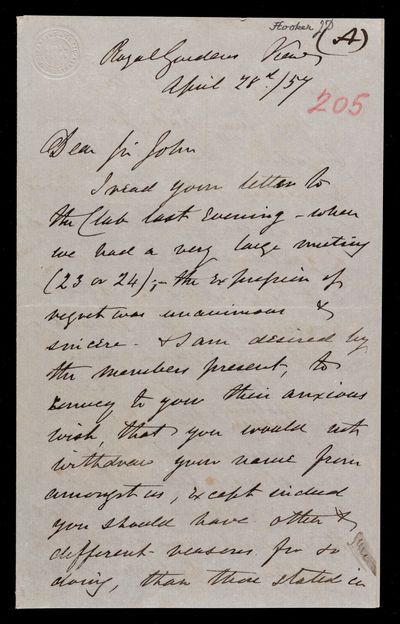 Hooker JD
(A)
Royal Gardens Kew
April 28th/57
205
Dear Sir John
I read your letter to
the Club last Evening - when
we had a very large meeting
(23 or 24);- the Expression of
regret was unanimous &
sincere - & I am desired by
the members present, to
convey to you their anxious
wish, that you would not
withdraw your name from
amongst us, except indeed
you should have other &
different reasons for so
doing, than those stated in